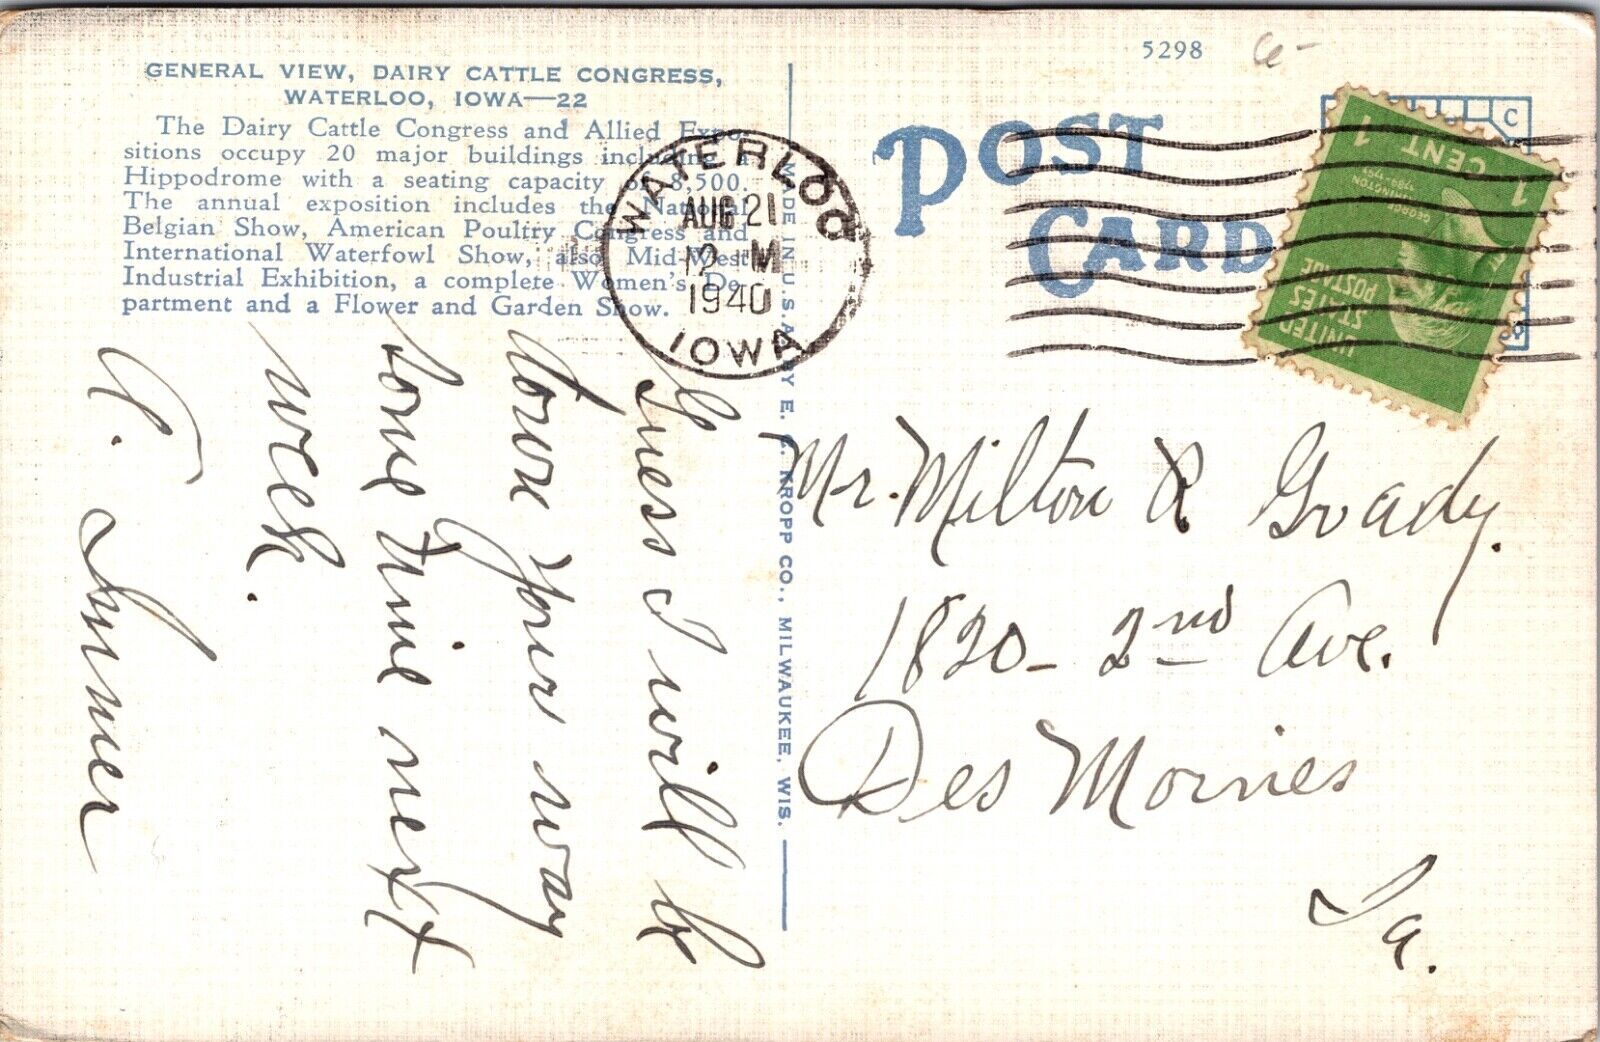 GENERAL VIEW, DAIRY CATTLE CONGRESS,
WATERLOO, IOWA—22
The Dairy Cattle Congress and Allied Expo-
sitions occupy 20 major buildings including a
Hippodrome with a seating capacity of 8,500.
The annual exposition includes the National
Belgian Show, American Poultry Congress and
International Waterfowl Show, also Mid-West
Industrial Exhibition, a complete Women's De-
partment and a Flower and Garden Show.
Guess I will be
down your way
some time next
week.
MADE IN U.S.A. BY E. C. KROPP CO., MILWAUKEE, WIS.
WATERLOO
AUG 21
12 M
1940
IOWA
5298
6-
POST
CARD
1 CENT 1
GEORGE WASHINGTON
1789-1797
UNITED
STATES
POSTAGE
Mr. Milton R Grady.
1820- 2nd Ave.
Des Moines
Ia.